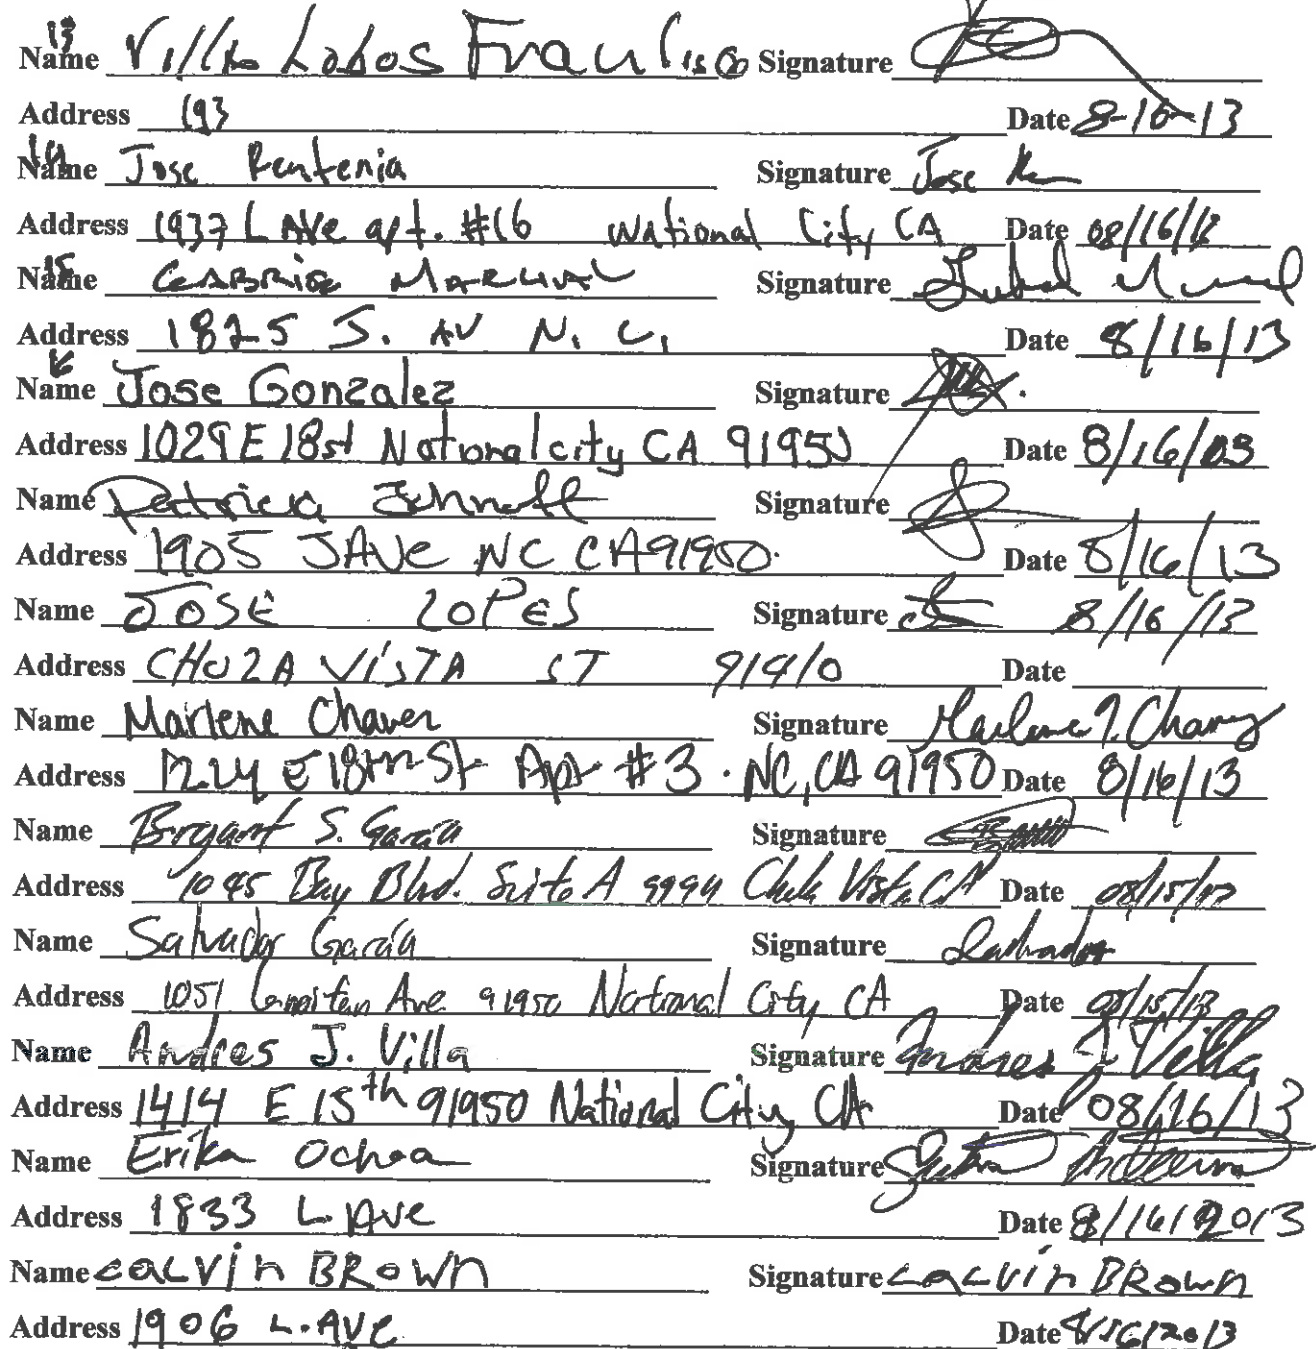 13
Name Villa Lobos Francisco Signature
Address 193 Date 8-16-13
14
Name Jose Renteria Signature Jose
Address 1937 L AVe apt. #16 National City CA Date 08/16/
15
Name GABRIEL MARCHAL Signature
Address 1825 J. AV N. C. Date 8/16/13
16
Name Jose Gonzalez Signature
Address 1029 E 18st National city CA 91950 Date 8/16/03
Name Patricia Signature
Address 1905 JAVe NC CA 91950. Date 8/16/13
Name JOSE LOPES Signature 8/16/13
Address CHULA VISTA ST 91910 Date
Name Marlene Chavez Signature Marlene J. Chavez
Address 1224 E 18th St Apt #3. NC, CA 91950 Date 8/16/13
Name Bryant S. García Signature
Address 1045 Bay Blvd. Suite A Chula Vista CA Date 08/15/13
Name Salvador García Signature Salvador
Address 1051 Ave 91950 National City, CA Date 08/15/13
Name Andres J. Villa Signature Andres J Villa
Address 1414 E 15th 91950 National City, CA Date 08/16/13
Name Erika Ochoa Signature
Address 1833 L. Ave Date 8/16/2013
Name CALVIN BROWN Signature CALVIN BROWN
Address 1906 L. AVE Date 8/16/2013